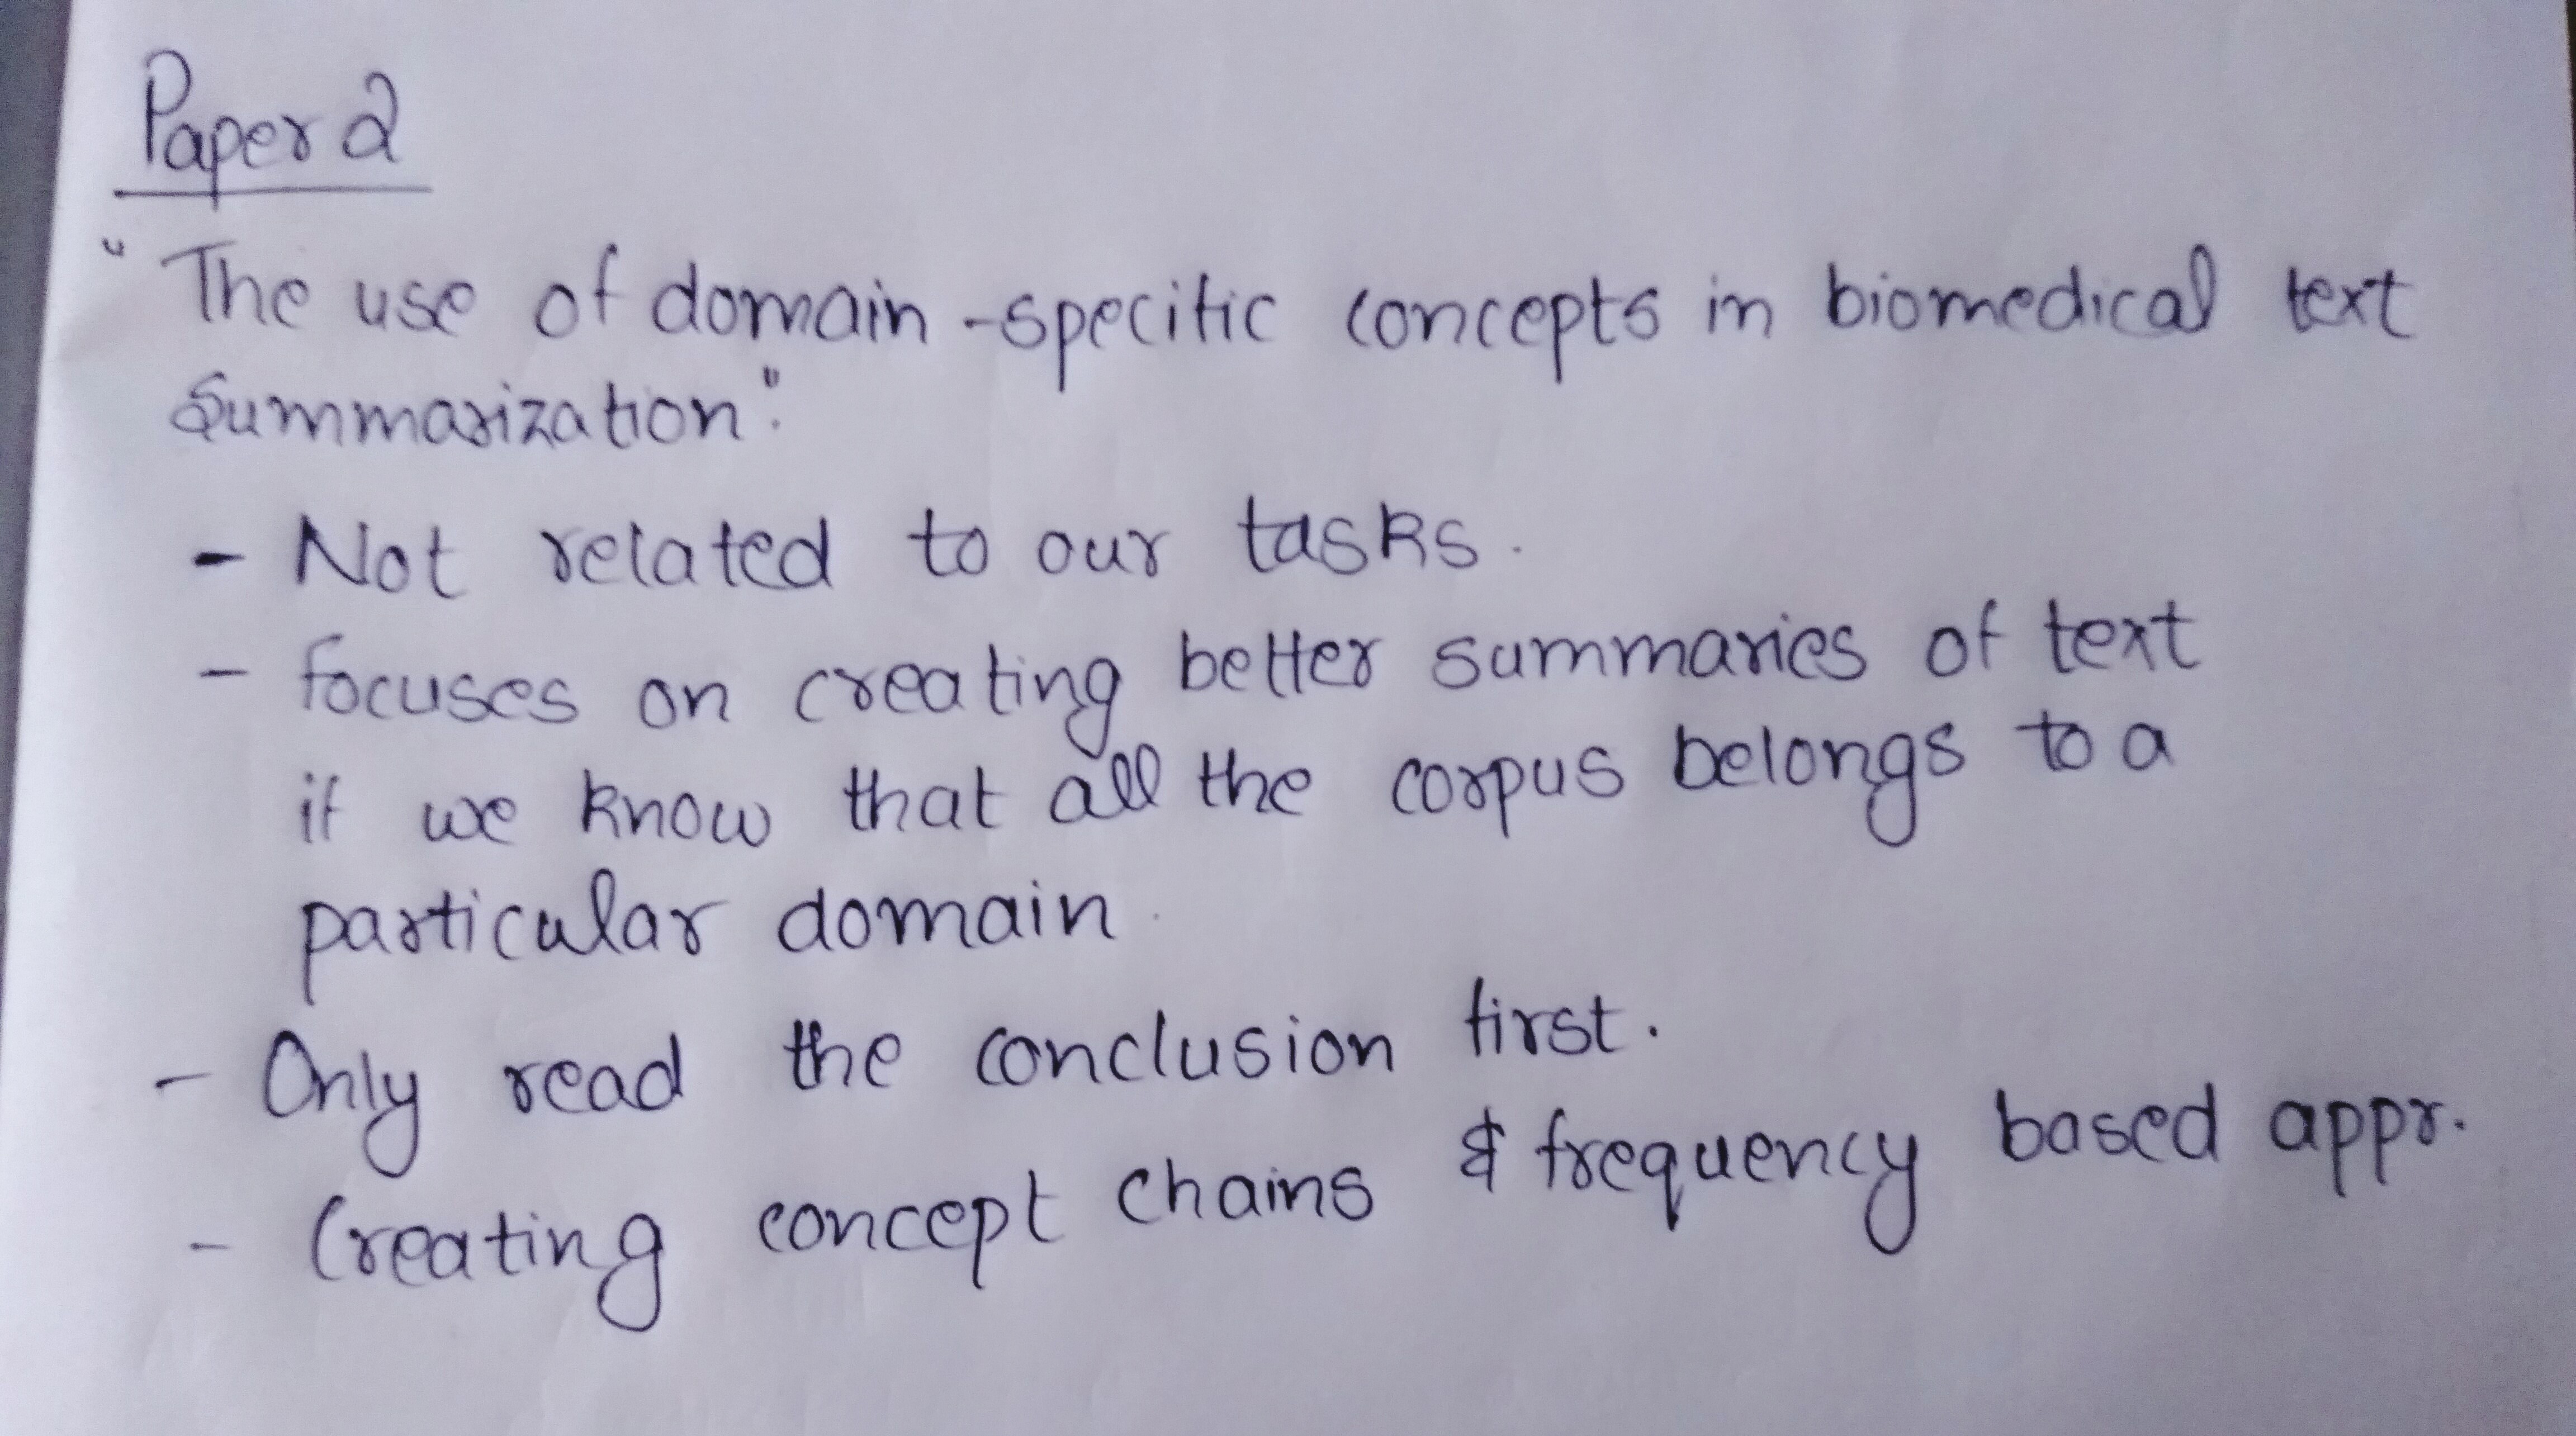 Paper 2
"The use of domain-specific concepts in biomedical text
Summarization".
- Not related to our tasks.
- focuses on creating better summaries of text
if we know that all the corpus belongs to a
particular domain.
- Only read the conclusion first.
- Creating concept chains & frequency based appr.